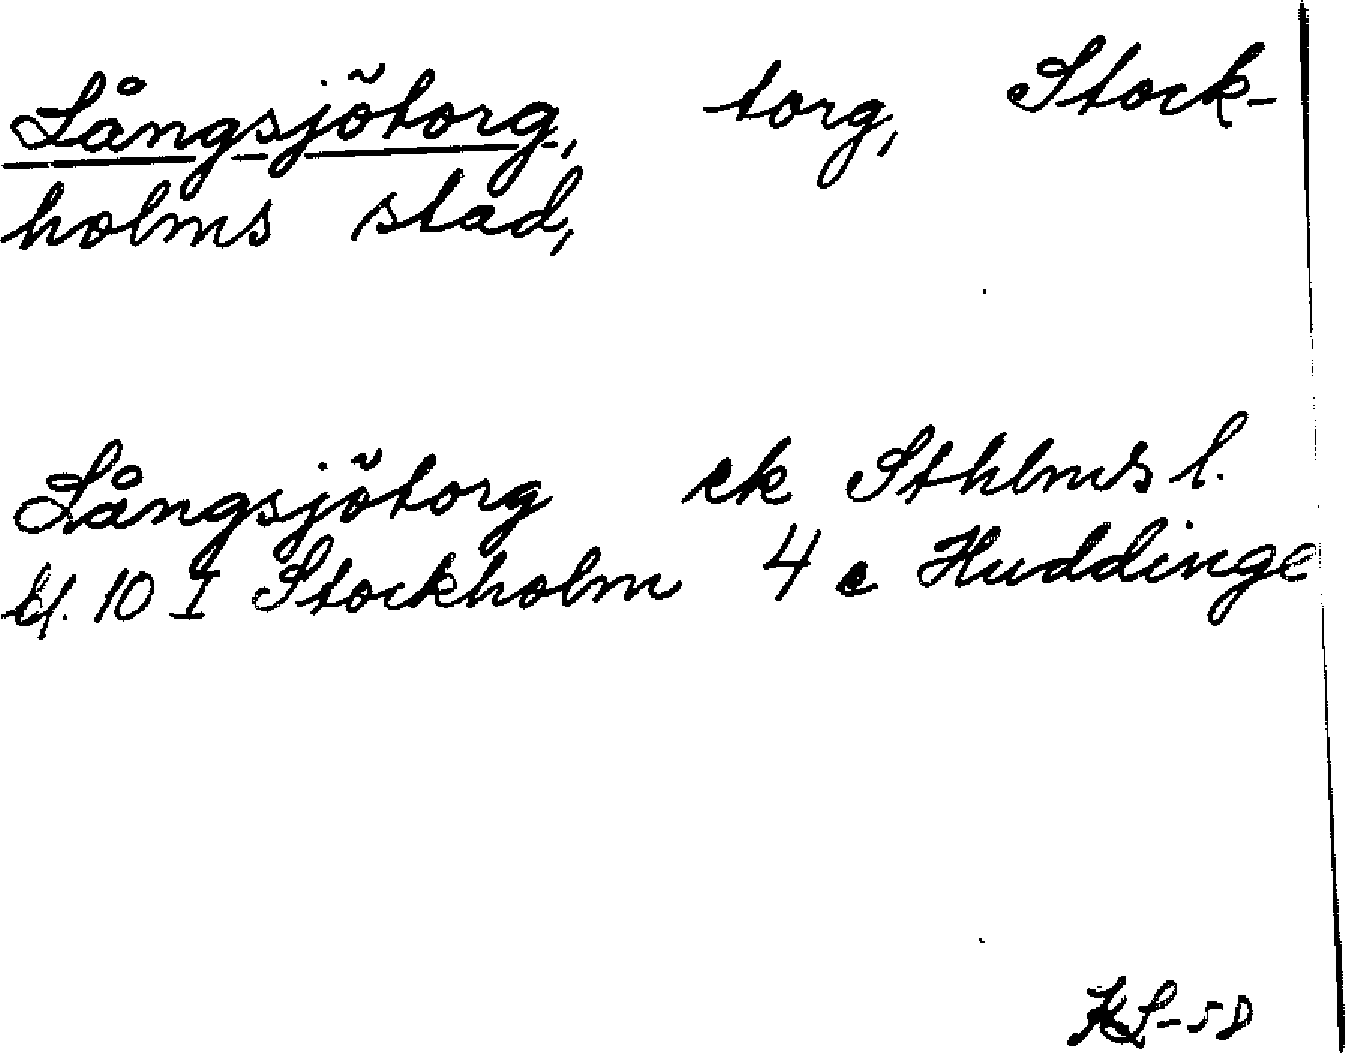 Långsjötorg, torg, Stock-
holms stad,
Långsjötorg ek Sthlms l.
bl. 10 I Stockholm 4 c Huddinge